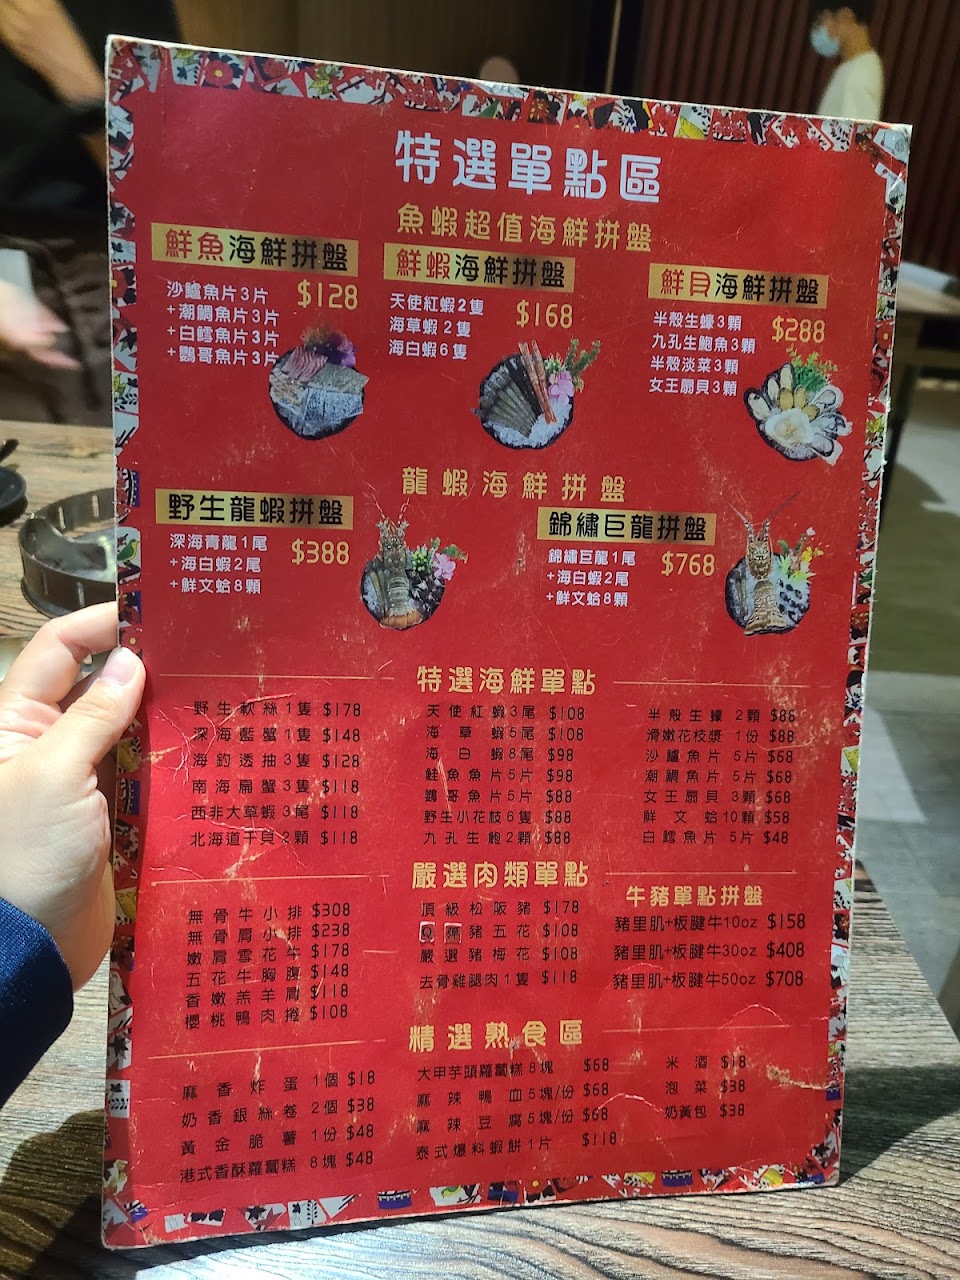 特選單點區
魚蝦超值海鮮拼盤
鮮魚海鮮拼盤
沙鱸魚片3片 $128
+潮鯛魚片3片
+白鱈魚片3片
+鸚哥魚片3片
鮮蝦海鮮拼盤
天使紅蝦2隻 $168
海草蝦2隻
海白蝦6隻
鮮貝海鮮拼盤
半殼生蠔3顆 $288
九孔生鮑魚3顆
半殼淡菜3顆
女王扇貝3顆
龍蝦海鮮拼盤
野生龍蝦拼盤
深海青龍1尾 $388
+海白蝦2尾
+鮮文蛤8顆
錦繡巨龍拼盤
錦繡巨龍1尾 $768
+海白蝦2尾
+鮮文蛤8顆
特選海鮮單點
野生軟絲1隻 $178
深海藍蟹1隻 $148
海釣透抽3隻 $128
南海扁蟹3隻 $118
西非大草蝦3尾 $118
北海道干貝2顆 $118
天使紅蝦3尾 $108
海草蝦5尾 $108
海白蝦8尾 $98
鮭魚魚片5片 $98
鸚哥魚片5片 $88
野生小花枝6隻 $88
九孔生鮑2顆 $88
半殼生蠔 2顆 $88
滑嫩花枝漿 1份 $88
沙鱸魚片 5片 $68
潮鯛魚片 5片 $68
女王扇貝 3顆 $68
鮮文蛤10顆 $58
白鱈魚片 5片 $48
嚴選肉類單點
無骨牛小排 $308
無骨肩小排 $238
嫩肩雪花牛 $178
五花牛胸腹 $148
香嫩羔羊肩 $118
櫻桃鴨肉捲 $108
頂級松阪豬 $178
Q彈豬五花 $108
嚴選豬梅花 $108
去骨雞腿肉1隻 $118
牛豬單點拼盤
豬里肌+板腱牛10oz $158
豬里肌+板腱牛30oz $408
豬里肌+板腱牛50oz $708
精選熟食區
麻香炸蛋 1個 $18
奶香銀絲卷 2個 $38
黃金脆薯 1份 $48
港式香酥蘿蔔糕 8塊 $48
大甲芋頭蘿蔔糕8塊 $68
麻辣鴨血5塊/份 $68
麻辣豆腐5塊/份 $68
泰式爆料蝦餅1片 $118
米酒 $18
泡菜 $38
奶黃包 $38